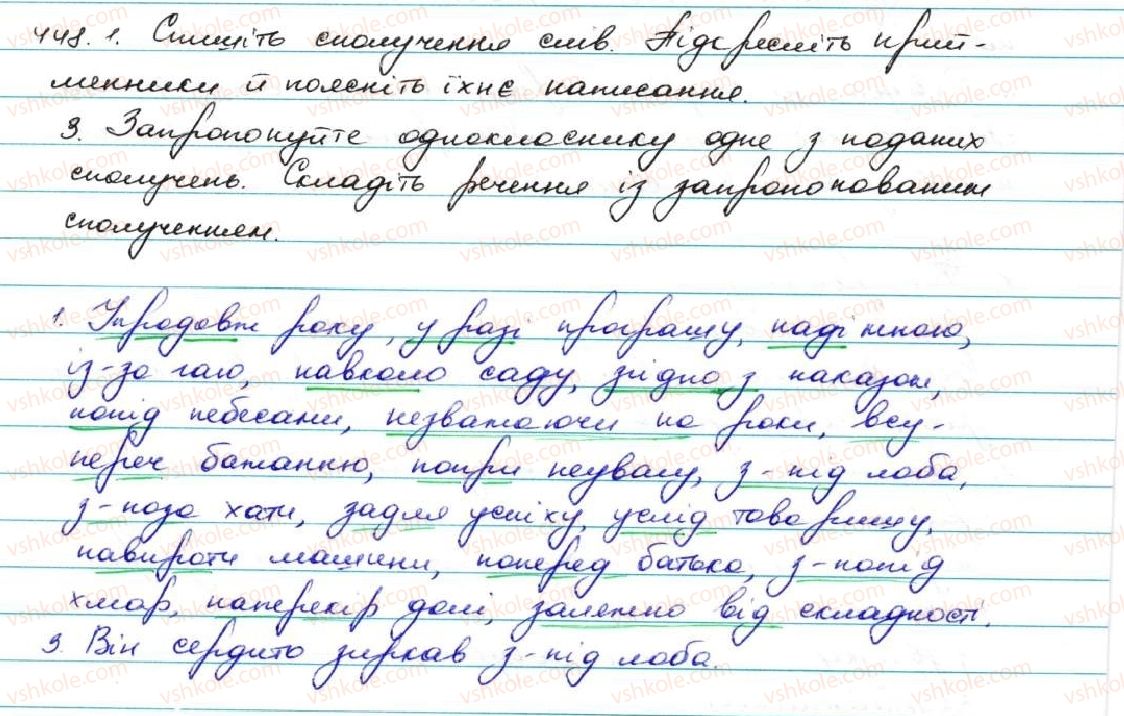 448. 1. Спишіть сполучення слів. Підкресліть прий-
менники й поясніть їхнє написання.
3. Запропонуйте однокласнику одне з поданих
сполучень. Складіть речення із запропонованим
сполученням.
1. Упродовж року, у разі програшу, наді мною,
із-за гаю, навколо саду, згідно з наказом,
попід небесами, незважаючи на роки, всу-
переч бажанню, попри неувагу, з-під лоба,
з-поза хати, задля успіху, услід товаришу,
навпроти машини, поперед батька, з-попід
хмар, наперекір долі, залежно від складності.
3. Він сердито зиркав з-під лоба.